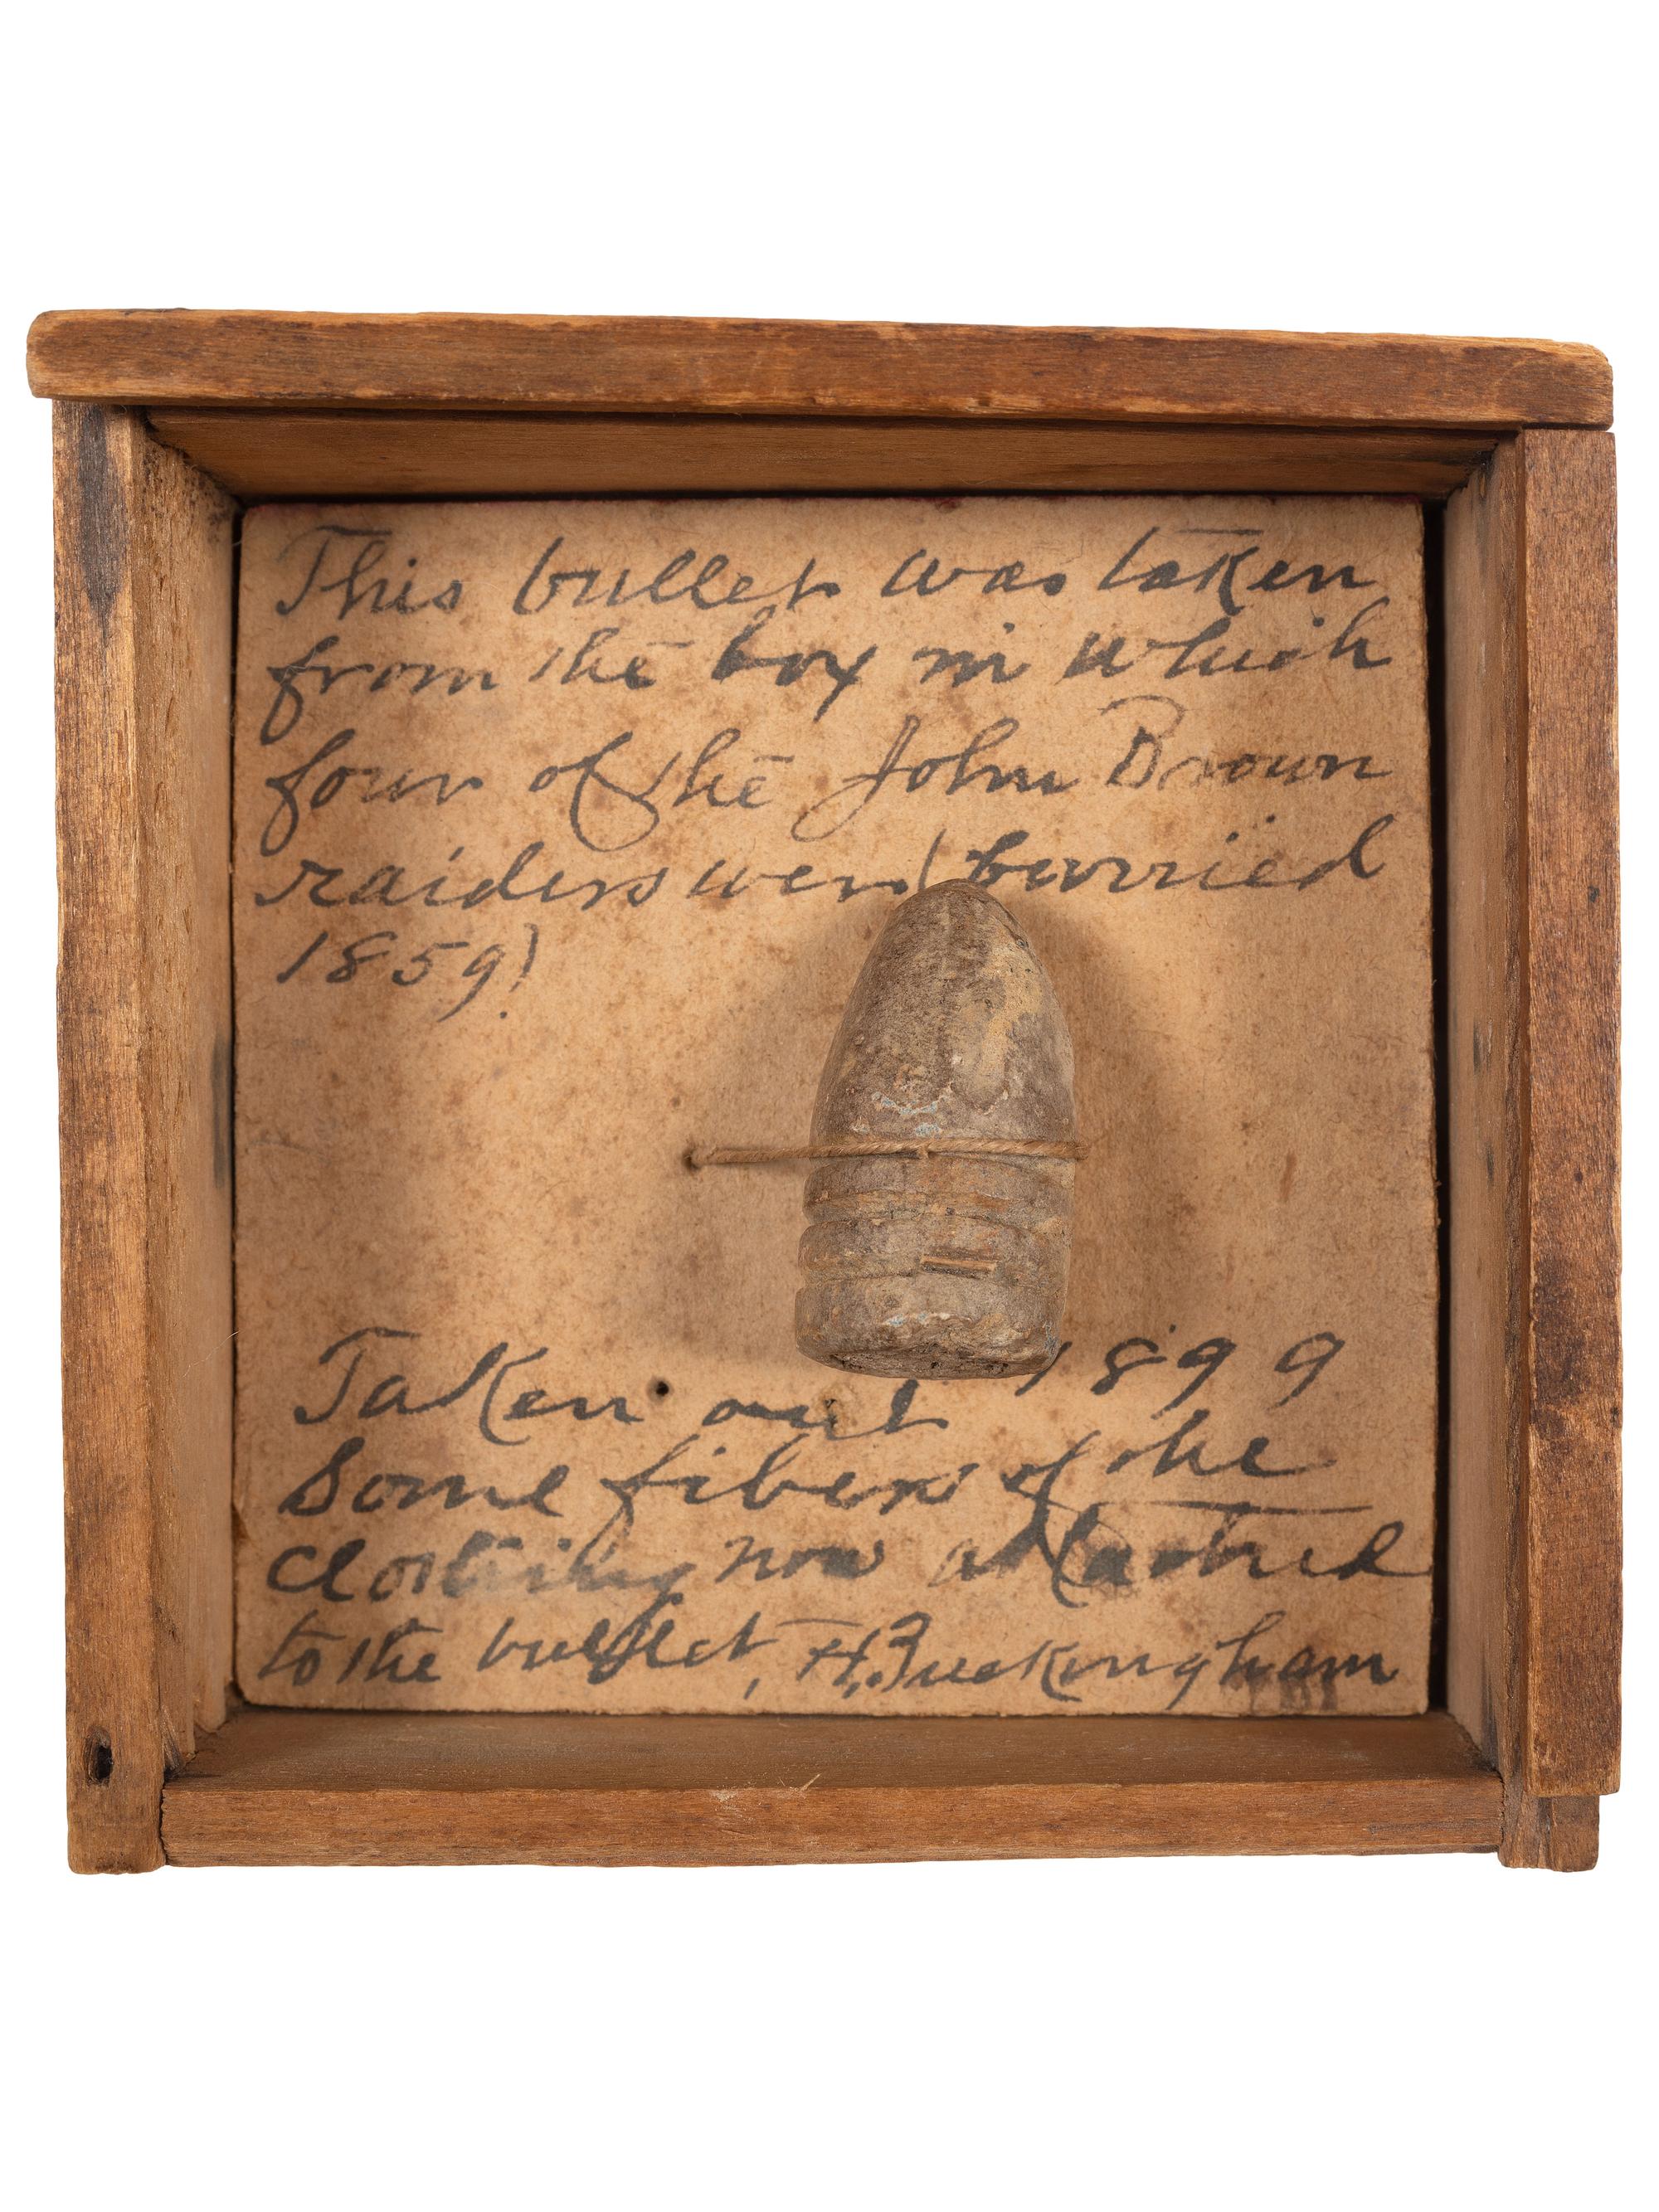 This bullet was taken
from the box in which
four of the John Brown
raiders were burried
1859!
Taken out 1899
Some fibers of the
clothing now attached
to the bullet, H,Buckingham